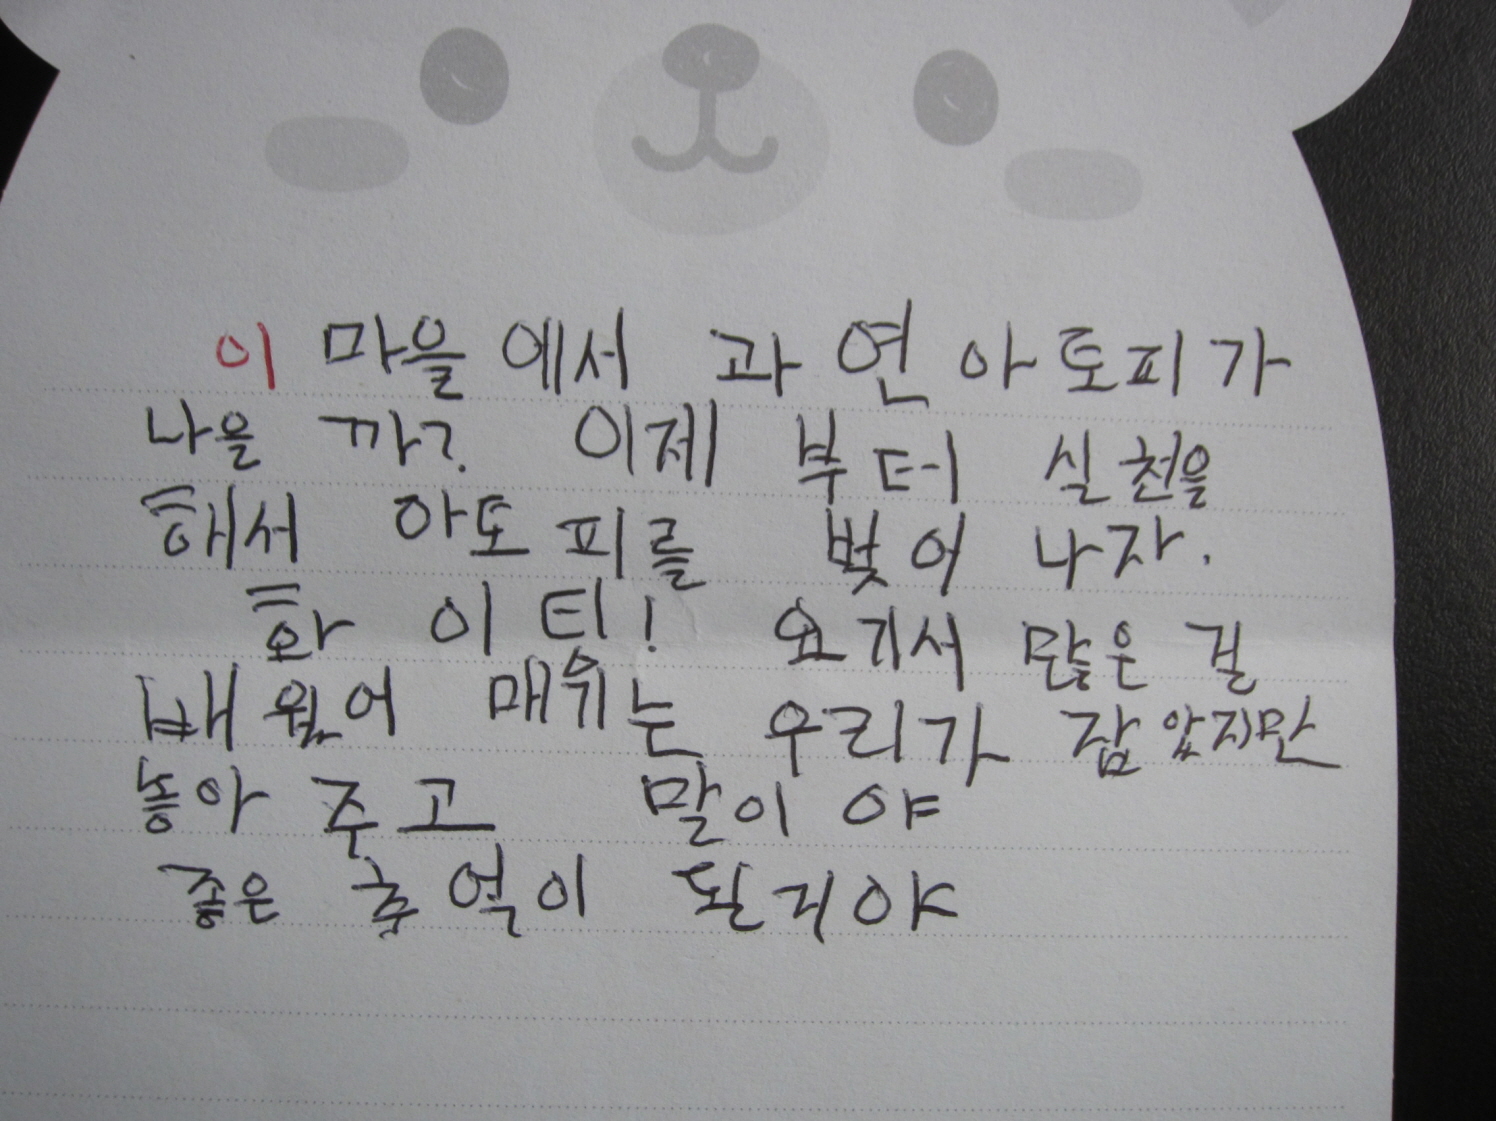 이 마을에서 과연 아토피가
나을 까? 이제 부터 실천을
해서 아토피를 벗어 나자.
화이팅! 요기서 많은 걸
배웠어 매위는 우리가 잡았지만
놓아 주고 말이야
좋은 추억이 된거야